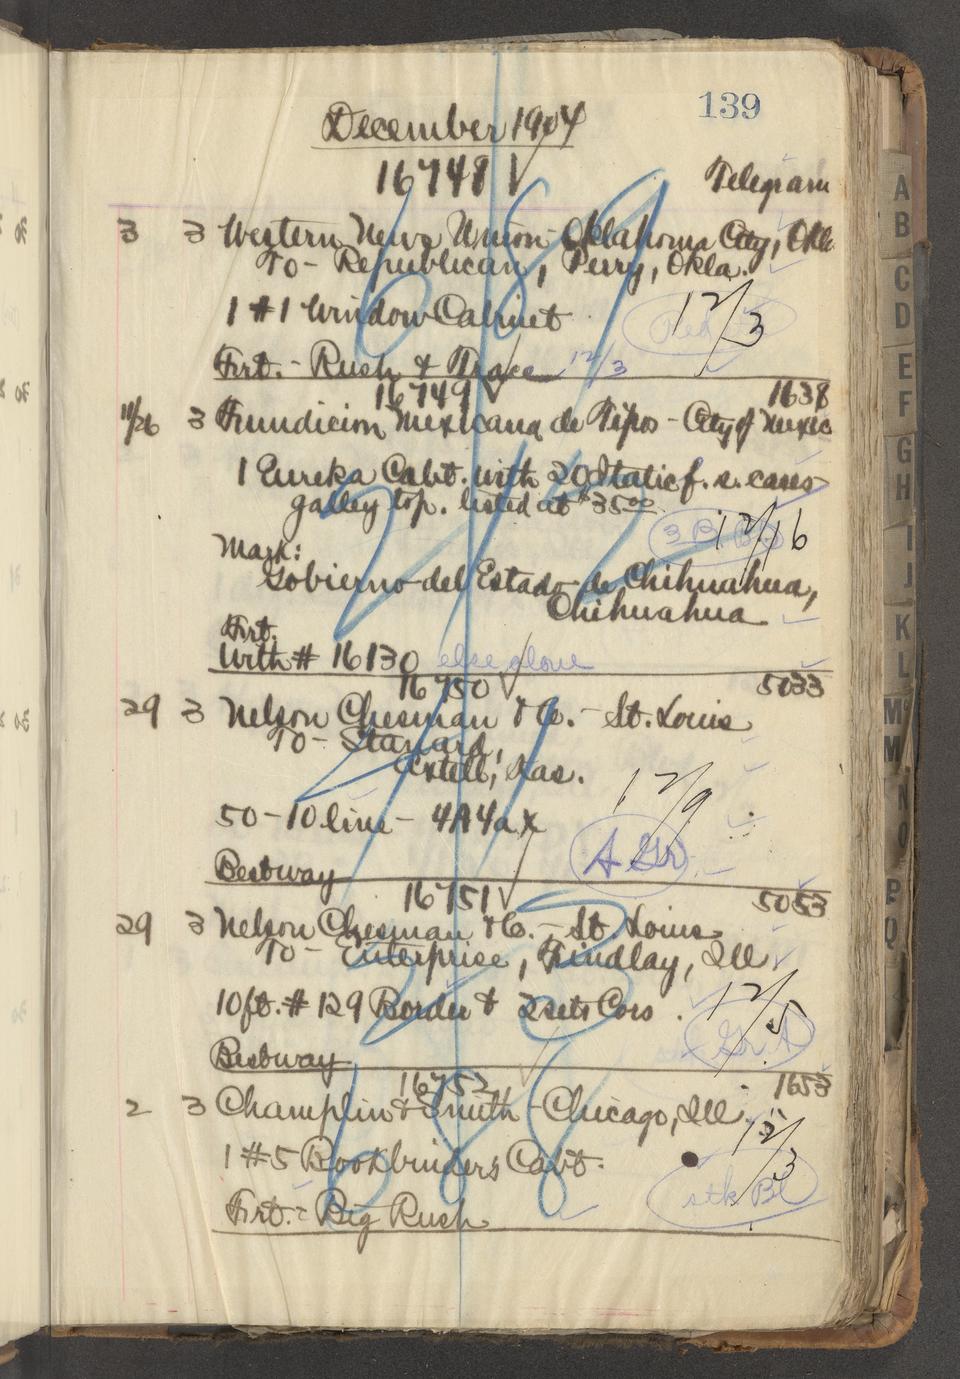 139
December 1904
16748 √
Telegram
3 3 Western News Union - Oklahoma City, Okla
To - Republican, Perry, Okla.
1 #1 Window Cabinet
12/3
Frt. - Rush & Trace 12/3
16749 √ 1638
11/26 3 Fundicion Mexicana de Tipos - City of Mexic
1 Eureka Cabt. with 20 Italic f. s. cases
galley top. listed at $35.00
3 B 12/16
Mark:
Gobierno del Estado de Chihuahua,
Chihuahua
Frt.
With # 16130 else alone
16750 √ 5033
29 3 Nelson Chesman & Co. - St. Louis
To - Standard,
Axtell, Kas.
50 - 10 line - 4A 4a x
12/9
A Gr
Bestway
16751 √ 5053
29 3 Nelson Chesman & Co. - St. Louis
To - Enterprise, Findlay, Ill
10 ft. # 129 Border & 2 sets Cors.
12/5
Gr A
Bestway
16752 √ 1653
2 3 Champlin & Smith - Chicago, Ill.
1 #5 Bookbinders Cabt.
12/3
stk Bl
Frt. - Big Rush
A
B
C
D
E
F
G
H
I
J
K
L
M
M
N
O
P
Q